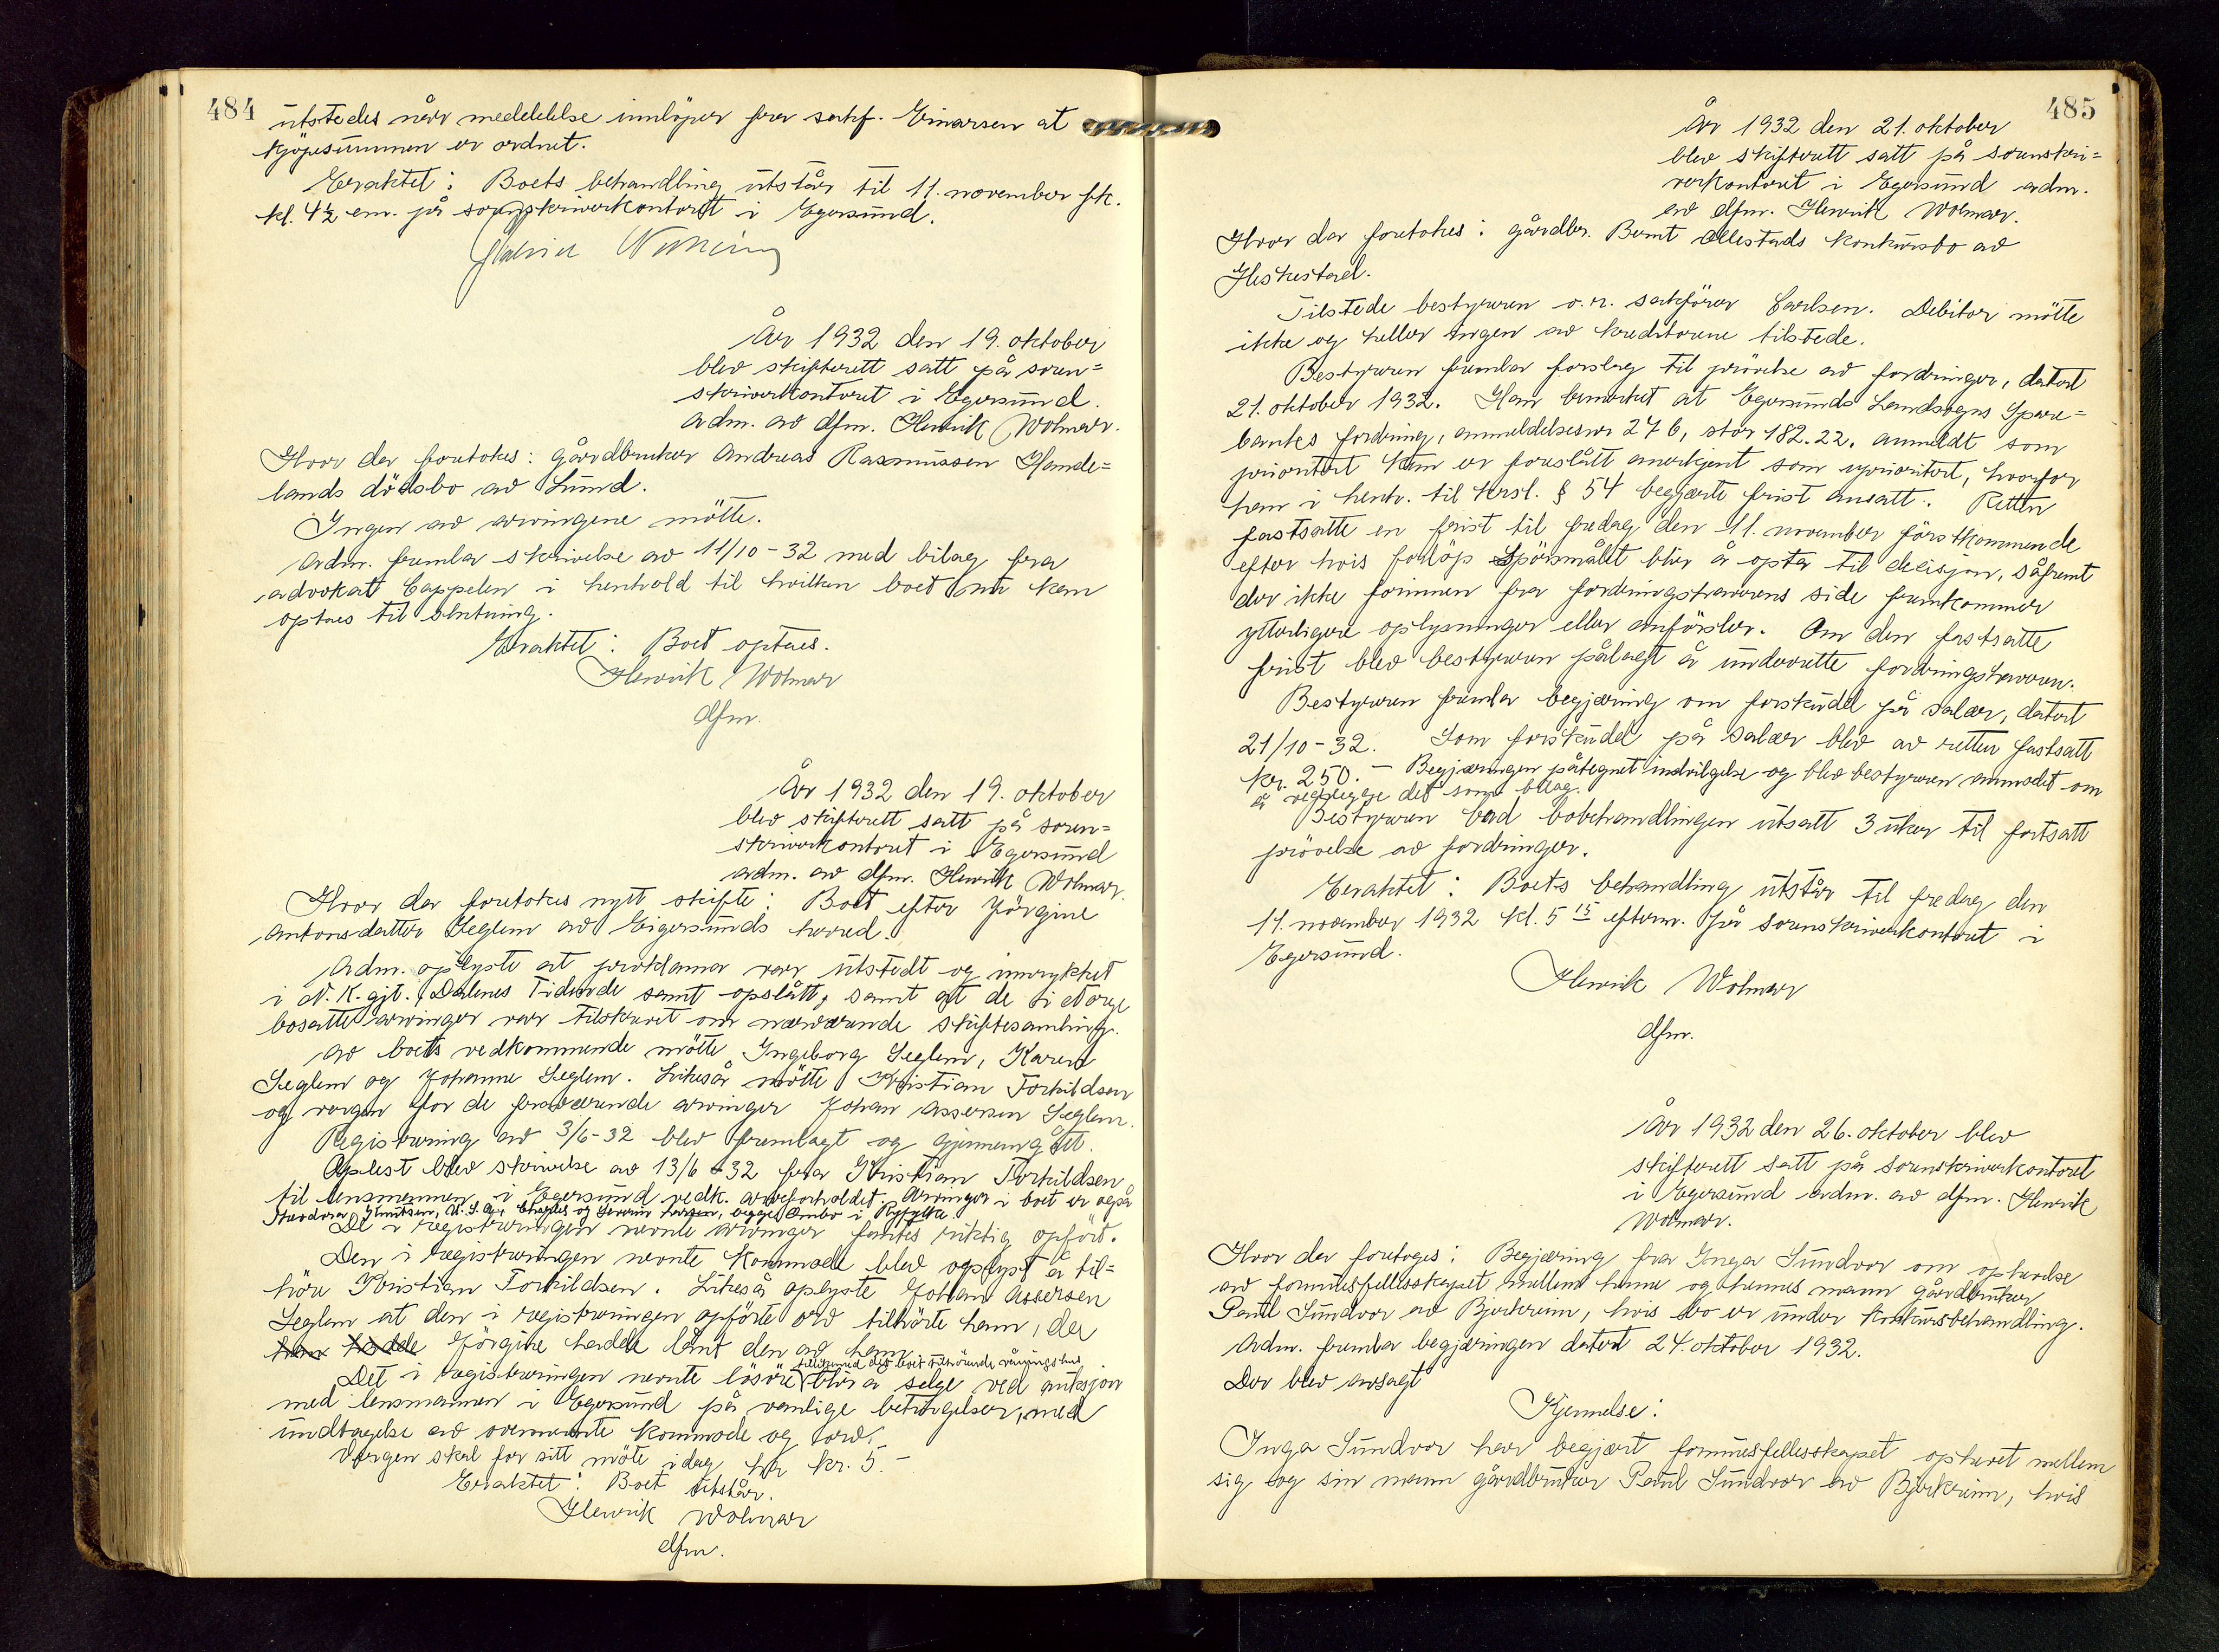 484
utstedes når meddelelse innløper fra sakf. Einarsen at
kjøpesummen er ordnet.
Eraktet: Boets behandling utstår til 11. november fk.
kl. 4½ em. på sorenskriverkontoret i Egersund.
År 1932 den 19. oktober
blev skifterett satt på soren=
skriverkontoret i Egersund.
adm. av dfm. Henrik Wolmar.
Hvor der foretokes: gårdbruker Andreas Rasmussen Hande=
lands dødsbo av Lund.
Ingen av arvingene møtte.
Adm. fremla skrivelse av 11/10-32 med bilag fra
advokat Cappelen i henhold til hvilken boet nu kan
optaes til slutning.
Eraktet: Boet optaes.
Henrik Wolmar
dfm.
År 1932 den 19. oktober
blev skifterett satt på soren=
skriverkontoret i Egersund
adm. av dfm. Henrik Wolmar.
Hvor der foretokes nytt skifte: Boet efter Jørgine
Antonsdatter Seglem av Eigersunds herred.
Adm. oplyste at proklama var utstedt og innrykket
i N.K.gjt. Dalenes Tidende samt opslått, samt at de i Norge
bosatte arvinger var tilskrevet om nærværende skiftesamling.
Av boets vedkommende møtte Ingeborg Seglem, Karen
Seglem og Johanne Seglem. Likeså møtte Kristian Torkildsen
og vergen for de fraværende arvinger Johan Assersen Seglem.
Registrering av 3/6-32 blev fremlagt og gjennemgått.
Oplest blev skrivelse av 13/6-32 fra Kristian Torkildsen
til lensmannen i Egersund vedk. arveforholdet. Arvinger i boet er også
Theodora Knutsen, U.S.A., Charles og Severin Larsen, begges Ombo i Ryfylke
De i registreringen nevnte arvinger fantes riktig opført.
Den i registreringen nevnte kommode blev oplyst å til=
høre Kristian Torkildsen. Likeså oplyste Johan Assersen
Seglem at den i registreringen opførte ovn tilhørte ham, da
han hadde Jørgine hadde lånt den av ham.
tillikemed det boet tilhørende våningshus
Det i registreringen nevnte løsøre blir å selge ved auksjon
med lensmannen i Egersund på vanlige betingelser, med
undtagelse av ovennevnte kommode og ovn.
Vergen skal for sitt møte idag ha kr. 5.-
Eraktet: Boet utstår.
Henrik Wolmar
dfm.
485
År 1932 den 21. oktober
blev skifterett satt på sorenskri=
verkontoret i Egersund adm.
av dfm. Henrik Wolmar.
Hvor der foretokes: gårdbr. Bernt Ollestads konkursbo av
Heskestad.
Tilstede bestyreren o.r. sakfører Carlsen. Debitor møtte
ikke og heller ingen av kreditorene tilstede.
Bestyreren fremla forslag til prøvelse av fordringer, datert
21. oktober 1932. Han bemerket at Egersunds Landsogns Spare=
bankes fordring, anmeldelsesnr 276, stor 182.22. anmeldt som
prioritert kun er foreslått anerkjent som uprioritert, hvorfor
han i henh. til krsl. § 54 begjærte frist ansatt. Retten
fastsatte en frist til fredag den 11. november førstkommende
efter hvis forløp spørsmålet blir å opta til decisjon, såfremt
der ikke forinnen fra fordringshaverens side fremkommer
ytterligere oplysninger eller anførsler. Om den fastsatte
frist blev bestyreren pålagt å underrette fordringshaveren.
Bestyreren fremla begjæring om forskudd på salær, datert
21/10-32. Som forskudd på salær blev av retten fastsatt
kr. 250.- Begjæringen påtegnet indvilgelse og blev bestyreren anmodet om
å vedlegge det som bilag.
Bestyreren bad bobehandlingen utsatt 3 uker til fortsatt
prøvelse av fordringer.
Eraktet: Boets behandling utstår til fredag den
11. november 1932 kl. 5 15 efterm. på sorenskriverkontoret i
Egersund.
Henrik Wolmar
dfm.
År 1932 den 26. oktober blev
skifterett satt på sorenskriverkontoret
i Egersund adm. av dfm. Henrik
Wolmar.
Hvor der foretoges: Begjæring fra Inga Sundvor om ophevelse
av formuesfellesskapet mellem henne og hennes mann gårdbruker
Paul Sundvor av Bjerkreim, hvis bo er under konkursbehandling.
Adm. fremla begjæringen datert 24. oktober 1932.
Der blev avsagt
Kjennelse:
Inga Sundvor har begjært formuesfellesskapet ophevet mellem
sig og sin mann gårdbruker Paul Sundvor av Bjerkreim, hvis